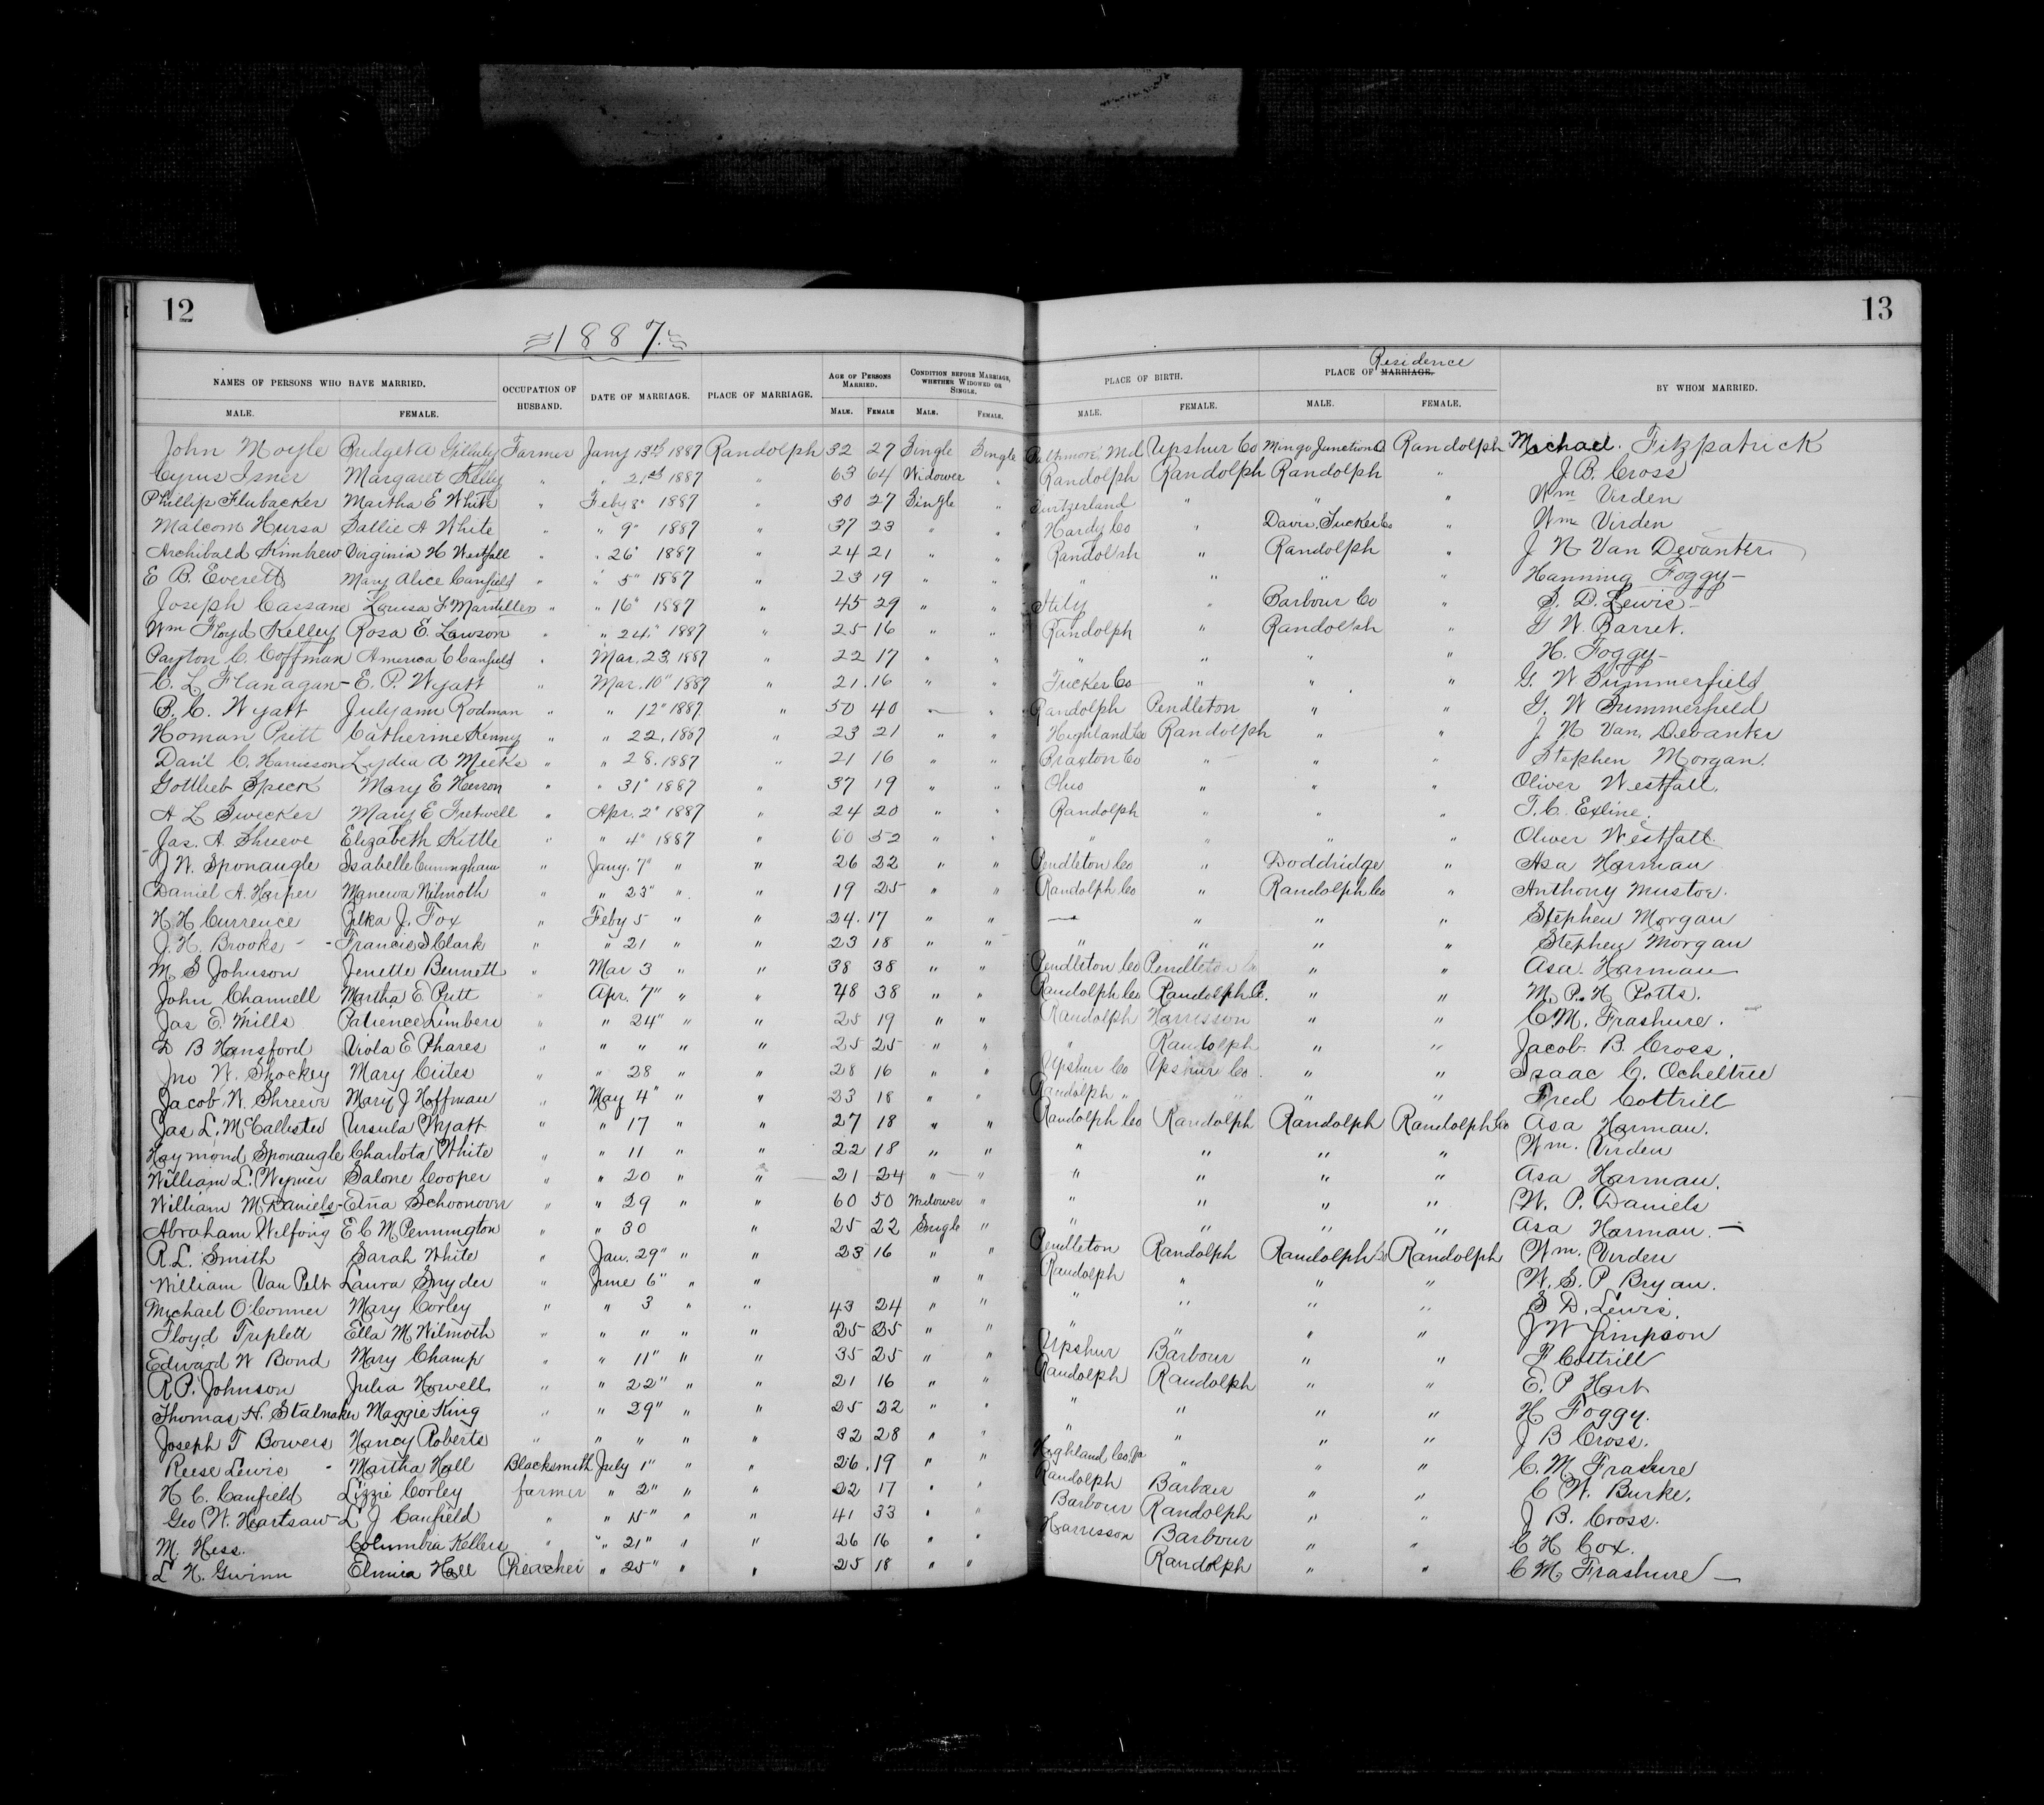 12
13
1887.
NAMES OF PERSONS WHO HAVE MARRIED. OCCUPATION OF HUSBAND. DATE OF MARRIAGE. PLACE OF MARRIAGE. AGE OF PERSONS MARRIED. CONDITION BEFORE MARRIAGE, WHETHER WIDOWED OR SINGLE. PLACE OF BIRTH. PLACE OF MARRIAGE. Residence BY WHOM MARRIED.
MALE. FEMALE. MALE. FEMALE MALE. FEMALE. MALE. FEMALE. MALE. FEMALE.
John Moyle Bridget A Farmer Jany 13th 1887 Randolph 32 27 Single Single Md Upshur Co Mingo Junction O Randolph Michael. Fitzpatrick
Cyrus Isner Margaret Kelley " " 21st 1887 " 63 64 Widower " Randolph Randolph Randolph " J. B. Cross
Phillip Flubacker Martha E White " Feby 8" 1887 " 30 27 Single " Switzerland " " " Wm Virden
Malcom Hursa Sallie A White " " 9" 1887 " 37 23 " " Hardy Co " Davis, Tucker Co " Wm Virden
Archibald Virginia H Westfall " " 26" 1887 " 24 21 " " Randolph " Randolph " J N Van Devanter
E B. Everett Mary Alice Canfield " " 5" 1887 " 23 19 " " " " " " Hanning Foggy -
Joseph Cassane Louisa F " " 16" 1887 " 45 29 " " Itily " Barbour Co " S. D. Lewis -
Wm Floyd Kelley Rosa E. Lawson " " 24" 1887 " 25 16 " " Randolph " Randolph " G W. Barret.
Payton C. Coffman America C Canfield " Mar. 23, 1887 " 22 17 " " " " " " H. Foggy -
C. L Flanagan - E. P. Wyatt " Mar. 10" 1887 " 21. 16 " " Tucker Co " " " G. W Summerfield
B. C. Wyatt July ann Rodman " " 12" 1887 " 50 40 — " Randolph Pendleton " " G. W Summerfield
Homan Pritt Catherine Kenny " " 22, 1887 " 23 21 " " Highland Co Randolph " " J. N Van Devanter
Danl C. Harrisson Lydia A Meeks " " 28, 1887 " 21 16 " " Braxton Co " " " Stephen Morgan.
Gottlieb Speck Mary E Herron " " 31" 1887 " 37 19 " " Ohio " " " Oliver Westfall.
A L Swecker Mary E Fretwell " Apr. 2" 1887 " 24 20 " " Randolph " " " T. C. Exline.
Jas. A. Shreeve Elizabeth Kittle " " 4" 1887 " 60 52 " " " " " " Oliver Westfall
J W. Sponaugle Isabelle Cunningham " Jany. 7" " " 26 22 " " Pendleton Co " Doddridge " Asa Harman
Daniel A. Harper Manerva Wilmoth " " 23" " " 19 25 " " Randolph Co " Randolph Co " Anthony Mustoe.
H H Currence Zilka J. Fox " Feby 5 " " 24. 17 " " — " " " Stephen Morgan
J. H. Brooks - - Francis Clark " " 21 " " 23 18 " " " " " " Stephen Morgan
M S Johnson Jenette Bennett " Mar 3 " " 38 38 " " Pendleton Co Pendleton Co " " Asa. Harman
John Channell Martha E. Pritt " Apr. 7" " " 48 38 " " Randolph Co Randolph C. " " M. P. H Potts.
Jas E. Mills Patience Limbers " " 24" " " 25 19 " " Randolph Harrisson " " C. M. Frashure.
D B Hansford Viola E Phares " " " " " 25 25 " " " Randolph " " Jacob. B. Cross.
Jno W. Shockey Mary Cutes " " 28 " " 28 16 " " Upshur Co Upshur Co. " " Isaac C. Ocheltree
Jacob. W. Shreeve Mary J Hoffman " May 4" " " 23 18 " " Randolph " " " " Fred Cottrill
Jas L. McCallister Ursula Wyatt " " 17 " " 27 18 " " Randolph Co Randolph Randolph Randolph Co Asa Harman.
Haymond Sponaugle Charlota White " " 11 " " 22 18 " " " " " " Wm. Virden
William L. Wymer Salone Cooper " " 20 " " 21 24 " " " " " " Asa Harman.
William M Daniels - Schoonover " " 29 " " 60 50 Widower " " " " " W. P. Daniels
Abraham Wilfong E C M Pennington " " 30 " 25 22 Single " " " " " Asa Harman. —
R. L. Smith Sarah White " Jan. 29" " " 23 16 " " Pendleton Randolph Randolph Co Randolph Wm. Virden
William Van Pelt Laura Snyder " June 6" " " " " Randolph " " " W. S. P Bryan.
Michael O'Conner Mary Corley " " 3 " " 43 24 " " " " " " S D. Lewis.
Floyd Triplett Ella M Wilmoth " " " " " 25 25 " " " " " " J W Simpson
Edward W Bond Mary Champ " " 11" " " 35 25 " " Upshur Barbour " " F Cottrill
R. P. Johnson Julia Howell " " 22" " " 21 16 " " Randolph Randolph " " E. P Hart
Thomas H. Stalnaker Maggie King " " 29" " " 25 22 " " " " " " H Foggy.
Joseph T Bowers Nancy Roberts " " " " " 32 28 " " " " " " J B Cross.
Reese Lewis - Martha Hall Blacksmith July 1" " " 26. 19 " " Highland Co. Va " " " C. M Frashure
H C. Canfield Lizzie Corley farmer " 2" " " 22 17 " " Randolph Barbour " " C W. Burke.
Geo W. Hartsaw - L J Canfield " " 15" " " 41 33 " " Barbour Randolph " " J B. Cross.
M. Hess. Columbia Kellers " " 21" " " 26 16 " " Harrisson Barbour " " C H Cox.
L H. Gwinn Elmira Hall Preacher " 25" " " 25 18 " " Randolph " " C M Frashure —